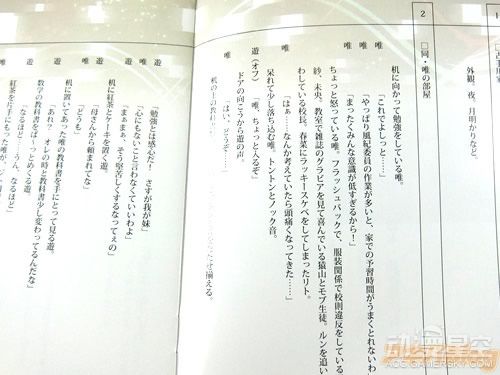 外観、夜、月明かりなど。
2 □同・唯の部屋
机に向かって勉強をしている唯。
唯 「これでよしっと……」
唯 「やっぱり風紀委員の作業が多いと、家での予習時間がうまくとれないわ
唯 「まったくみんな意識が低すぎるから！」
ちょっと怒っている唯。フラッシュバックで、服装関係で校則違反をしている
紗、未央、教室で雑誌のグラビアを見て喜んでいる猿山とモブ生徒。ルンを追い
わしている校長。春菜にラッキースケベをしてしまったリト。
唯 「はぁ……なんか考えていたら頭痛くなってきた……」
呆れて少し落ち込む唯。トントンとノック音。
遊（オフ）「唯、ちょっと入るぞ」
ドアの向こうから遊の声。
唯 「はい、どうぞ……」
机の上の教
せ揃える。
遊 「勉強とは感心だ！　さすが我が妹」
唯 「心にもないこと言わなくていいわよ」
遊 「まぁまぁ、そう堅苦しくするなってぇの」
机に紅茶とケーキを置く遊。
遊 「母さんから頼まれてな」
唯 「どうも」
机に置いてあった唯の教科書を手にとって見る遊。
遊 「あれっ？　オレの時と教科書少し変わってるんだな」
数学の教科書をぱ〜っとめくる遊。
遊 「なるほど…うん、なるほど」
紅茶を片手にもった唯が、
ACG.GAMERSKY.COM